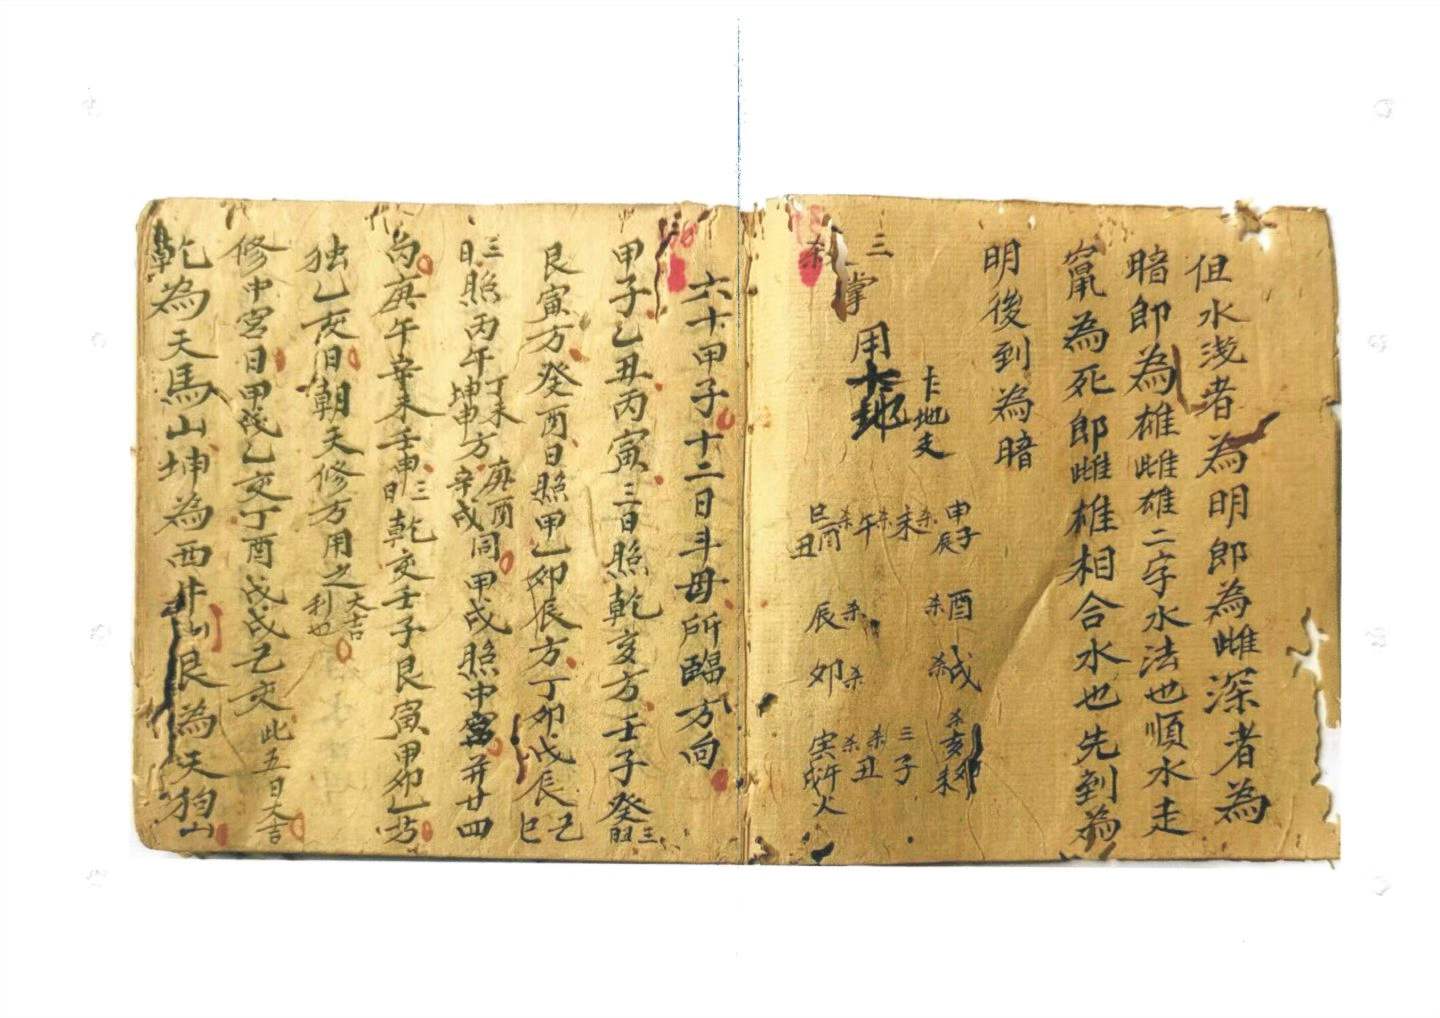 但水浅者為明郎為雌深者為
暗郎為雄雌雄二字水法也順水走
為死郎雌雄相合水也先到為
明後到為暗
三
掌
用
卡地支
申子辰
酉
戌
亥卯未
杀
未
杀
午
杀
巳酉丑
辰
卯
寅午戌火
丑
三子
六十甲子十二日斗母所臨方向
甲子乙丑丙寅三日照乾亥方壬子癸丑三
艮寅方癸酉日照甲乙卯辰方丁卯戊辰己巳
三日照丙午丁未坤申方庚酉辛戌同甲戌照中宮并廿四
向庚午辛未壬申三日乾亥壬子艮寅甲卯乙方
独乙亥日朝天修方用之大吉利也
修中宮日甲戌乙亥丁酉戊戌己亥此五日大吉
乾為天馬山坤為西牛山艮為天狗山